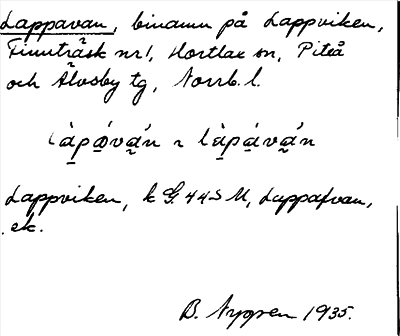 Lappavan, binamn på Lappviken,
Finnträsk nr 1, Hortlax sn, Piteå
och Älvsby tg, Norrb. l.
làpǻván ~ làpáván
Lappviken, k G. 445 M, Lappafvan,
ek.
B. Nygren 1935.